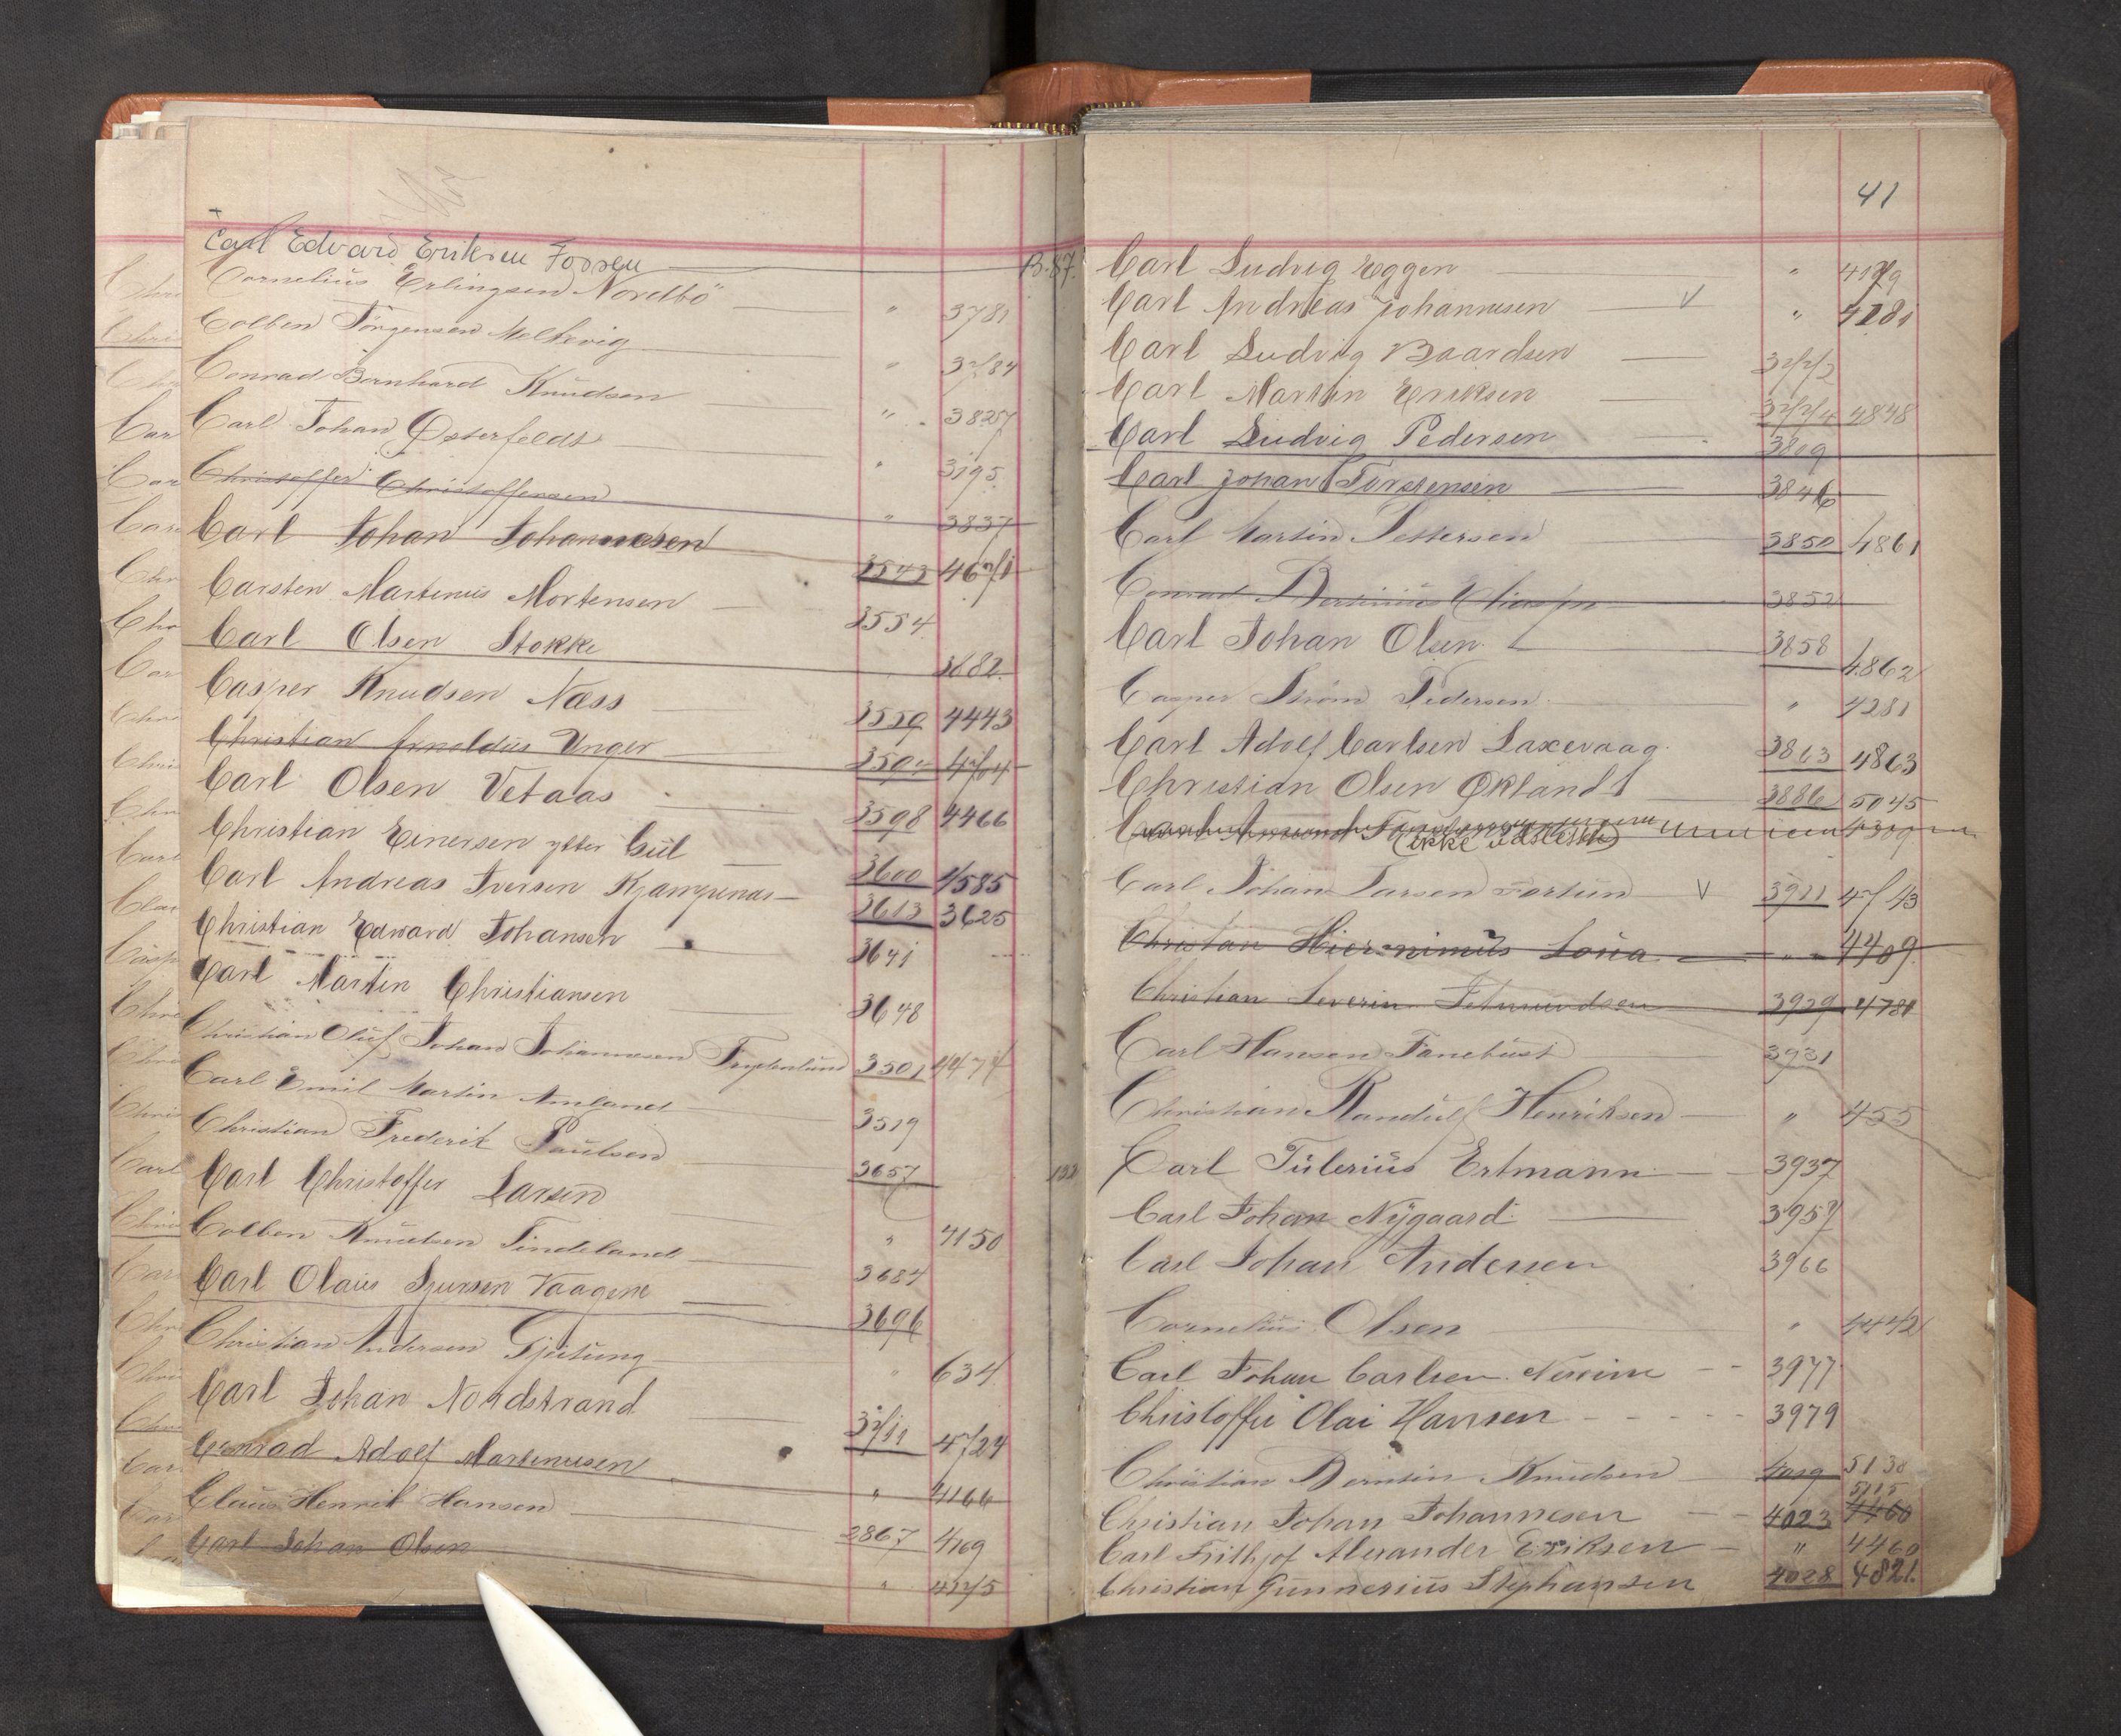 Carl Edvard Eriksen Fossen B. 87.
Cornelius Erlingsen Nordbö " 3781
Colben Jörgensen Melkevig " 3784
Conrad Bernhard Knudsen " 3827
Carl Johan Østerfeldt " 3195
Christoffer Christoffersen " 3837
Carl Johan Johannesen 3543 4671
Carsten Martinus Mortensen 3554
Carl Olsen Stokke 3682
Casper Knudsen Næss 3559 4443
Christian Arnoldus Unger 4704
Carl Olsen Vetaas 3598 4466
Christian Einersen ytter 3600 4585
Carl Andreas Iversen 3613 3625
Christian Edward Johansen 3641
Carl Martin Christiansen 3648
Christian Oluf Johan Johannesen 3501 4474
Carl Emil Martin Amland 3519
Christian Frederik Paulsen 3657 122
Carl Christoffer Larsen
Colben Knudsen Tindeland " 4150
Carl Olaus Sjursen Vaagene 3684
3696
Christian Andersen Gjetung " 634
Carl Johan Nordstrand 3711 4724
Conrad Adolf Martinusen " 4166
Claus Henrik Hansen 2867 4169
Carl Johan Olsen " 4275
41
Carl Ludvig Eggen " 4179
Carl Andreas Johannesen V " 4281
Carl Ludvig Baardsen 3773
Carl Martin Eriksen 3774 4848
Carl Ludvig Pedersen 3809
Carl Johan Torstensen 3846
Carl Martin Pettersen 3850 4861
Conrad 3852
Carl Johan Olsen 3858 4862
Casper Strøm Pedersen " 4281
Carl Adolf Carlsen Laxevaag 3863 4863
Christian Olsen Økland 3886 5045
(ikke 4319
Carl Johan Larsen Fortun V 3911 4743
Christian Hieronimus Loua " 4409
Christian Severin 3929 4781
Carl Hansen Fanebust 3931
Christian Randulf Henriksen " 455
Carl Tulerius Ertmann 3937
Carl Johan Nÿgaard 3957
Carl Johan Andersen 3966
Cornelius Olsen " 4442
Carl Johan Carlsen 3977
Christoffer Olai Hansen 3979
Christian Berntin Knudsen 4019 5138
Christian Johan Johannesen 4023 5115 4460
Carl Frithjof Alexander Eriksen " 4460
Christian Gunnerius Stephansen 4028 4821